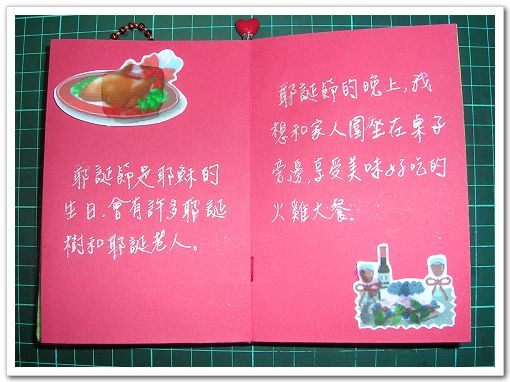 耶誕節是耶穌的
生日.會有許多耶誕
樹和耶誕老人。
耶誕節的晚上,我
想和家人圍坐在桌子
旁邊.享受美味好吃的
火雞大餐.